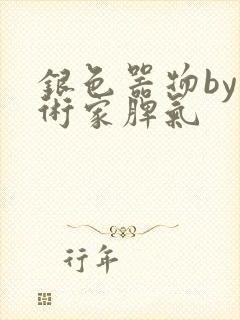 銀色器物by
術家脾氣
行年